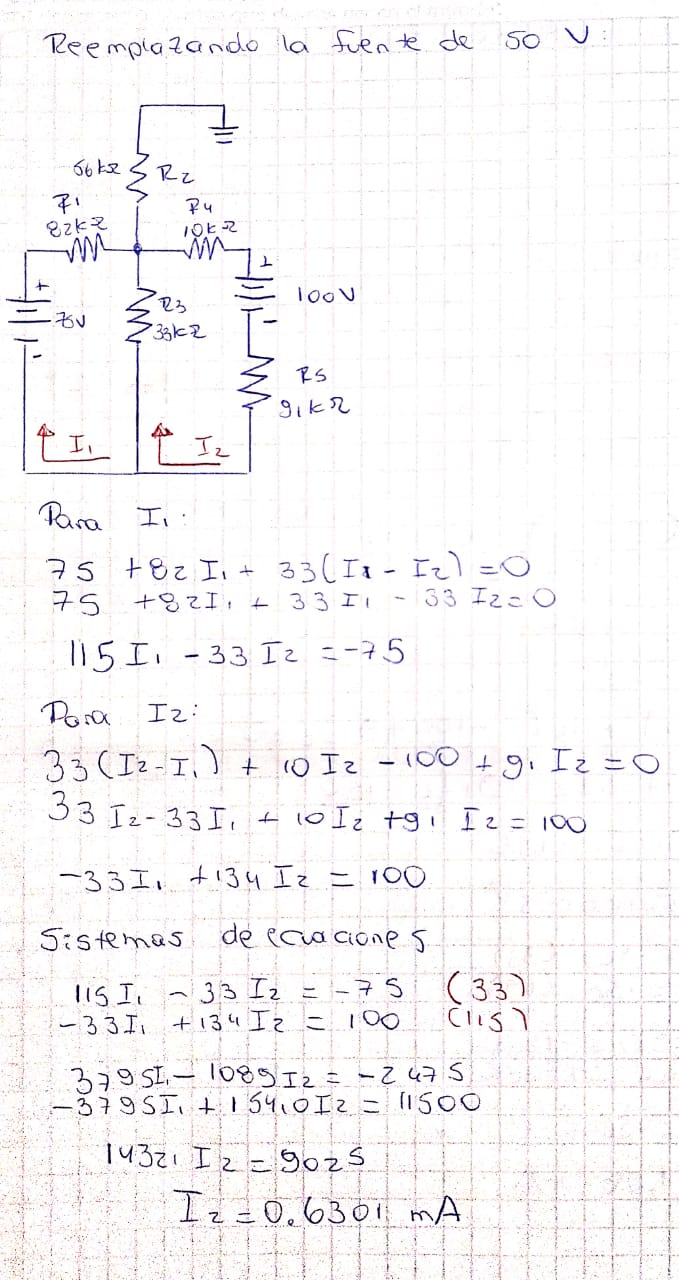 Reemplazando la fuente de 50 V:
56kΩ
R2
R1
82kΩ
R4
10kΩ
+
+
75V
-
R3
33kΩ
100V
-
R5
91kΩ
I1
I2
Para I1:
75 +82 I1 + 33(I1 - I2) =0
75 +82I1 + 33 I1 - 33 I2=0
115 I1 - 33 I2 = -75
Para I2:
33(I2-I1) + 10 I2 - 100 + 91 I2 = 0
33 I2 - 33I1 + 10I2 +91 I2 = 100
-33I1 +134 I2 = 100
Sistemas de ecuaciones
115 I1 - 33 I2 = -75 (33)
-33I1 +134 I2 = 100 (115)
3795I1 - 1089I2 = -2475
-3795I1 + 15410I2 = 11500
14321 I2 = 9025
I2 = 0.6301 mA